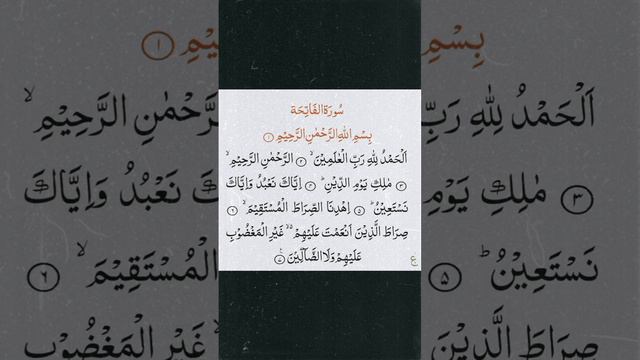 سُورَةُ الفَاتِحَة
بِسْمِ اللهِ الرَّحْمٰنِ الرَّحِيْمِ ۝١
اَلْحَمْدُ لِلّٰهِ رَبِّ الْعٰلَمِيْنَ ۙ ۝٢ الرَّحْمٰنِ الرَّحِيْمِ ۙ
۝٣ مٰلِكِ يَوْمِ الدِّيْنِ ؕ ۝٤ اِيَّاكَ نَعْبُدُ وَاِيَّاكَ
نَسْتَعِيْنُ ؕ ۝٥ اِهْدِنَا الصِّرَاطَ الْمُسْتَقِيْمَ ۙ ۝٦
صِرَاطَ الَّذِيْنَ اَنْعَمْتَ عَلَيْهِمْ ۙ۬ غَيْرِ الْمَغْضُوْبِ
عَلَيْهِمْ وَلَا الضَّآلِّيْنَ ۝٧
ع